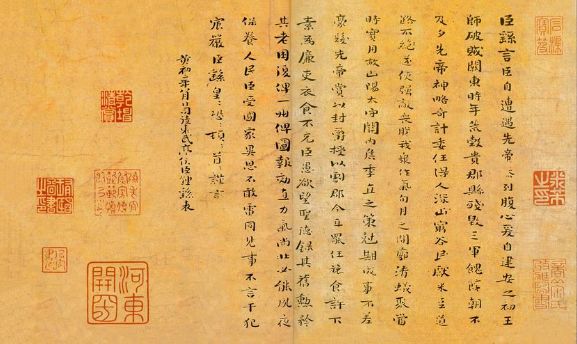 臣繇言臣自遭遇先帝忝列腹心爰自建安之初王
師破賊關東時年荒穀貴郡縣殘毀三軍餽饟朝不
及夕先帝神略奇計委任得人深山窮谷民獻米豆道
路不絕遂使強敵喪膽我衆作氣旬月之間廓清蟻聚當
時實用故山陽太守關內侯季直之策剋期成事不差
豪髮先帝賞以封爵授以劇郡今直罷任旅食許下
素爲廉吏衣食不充臣愚欲望聖德錄其舊勳矜
其老困復俾一州俾圖報効直力氣尚壯必能夙夜
保養人民臣受國家異恩不敢雷同見事不言干犯
宸嚴臣繇皇〻恐〻頓〻首〻謹言
黃初二年八月日司徒東武亭侯臣鍾繇表
河東
米芾之印